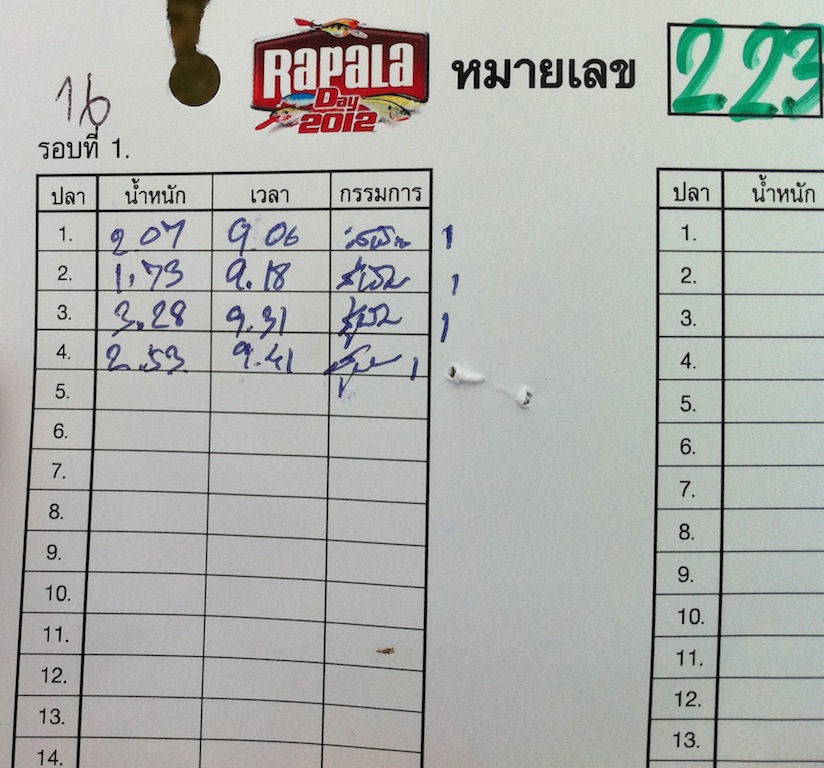 16
RAPALA
Day
2012
หมายเลข
223
รอบที่ 1.
ปลา น้ำหนัก เวลา กรรมการ
1. 2.07 9.06 1
2. 1.73 9.18 1
3. 3.28 9.31 1
4. 2.53 9.41 1
5.
6.
7.
8.
9.
10.
11.
12.
13.
14.
ปลา น้ำหนัก
1.
2.
3.
4.
5.
6.
7.
8.
9.
10.
11.
12.
13.